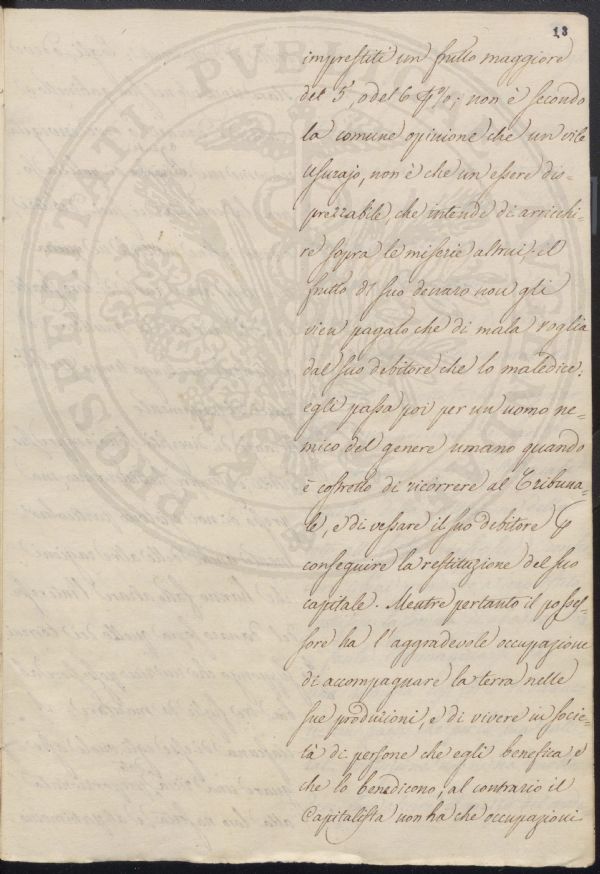 13
imprestiti un frutto maggiore
del 5, o del 6 p%; non è secondo
la comune opinione che un vile
Usurajo, non è che un essere dis=
prezzabile, che intende di arricchi=
re sopra le miserie altrui; il
frutto di suo denaro non gli
vien pagato che di mala voglia
dal suo debitore che lo maledice:
egli passa poi per un uomo ne=
mico del genere umano quando
è costretto di ricorrere al Tribuna=
le, e di vessare il suo debitore p
conseguire la restituzione del suo
capitale. Mentre pertanto il posses=
sore ha l'aggradevole occupazione
di accompagnare la terra nelle
sue produzioni, e di vivere in socie=
tà di persone che egli benefica, e
che lo benedicono; al contrario il
Capitalista non ha che occupazioni
PROSPERITATI PVBLICAE